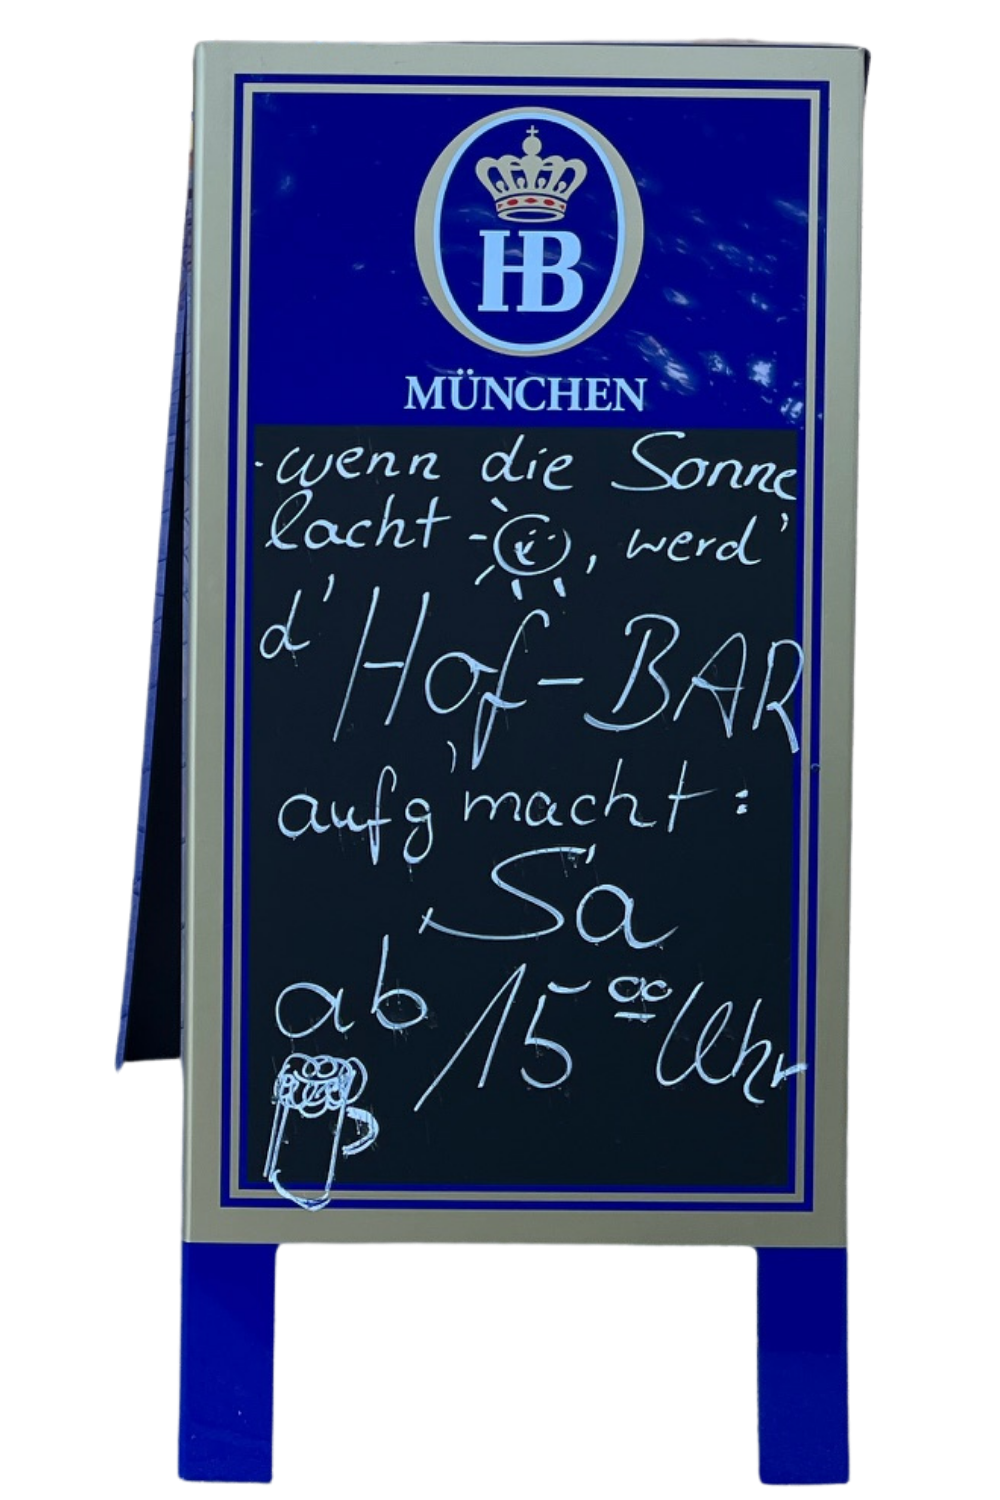 HB
MÜNCHEN
wenn die Sonne
lacht, werd'
d' Hof-BAR
aufg'macht:
Sa
ab 15⁰⁰ Uhr